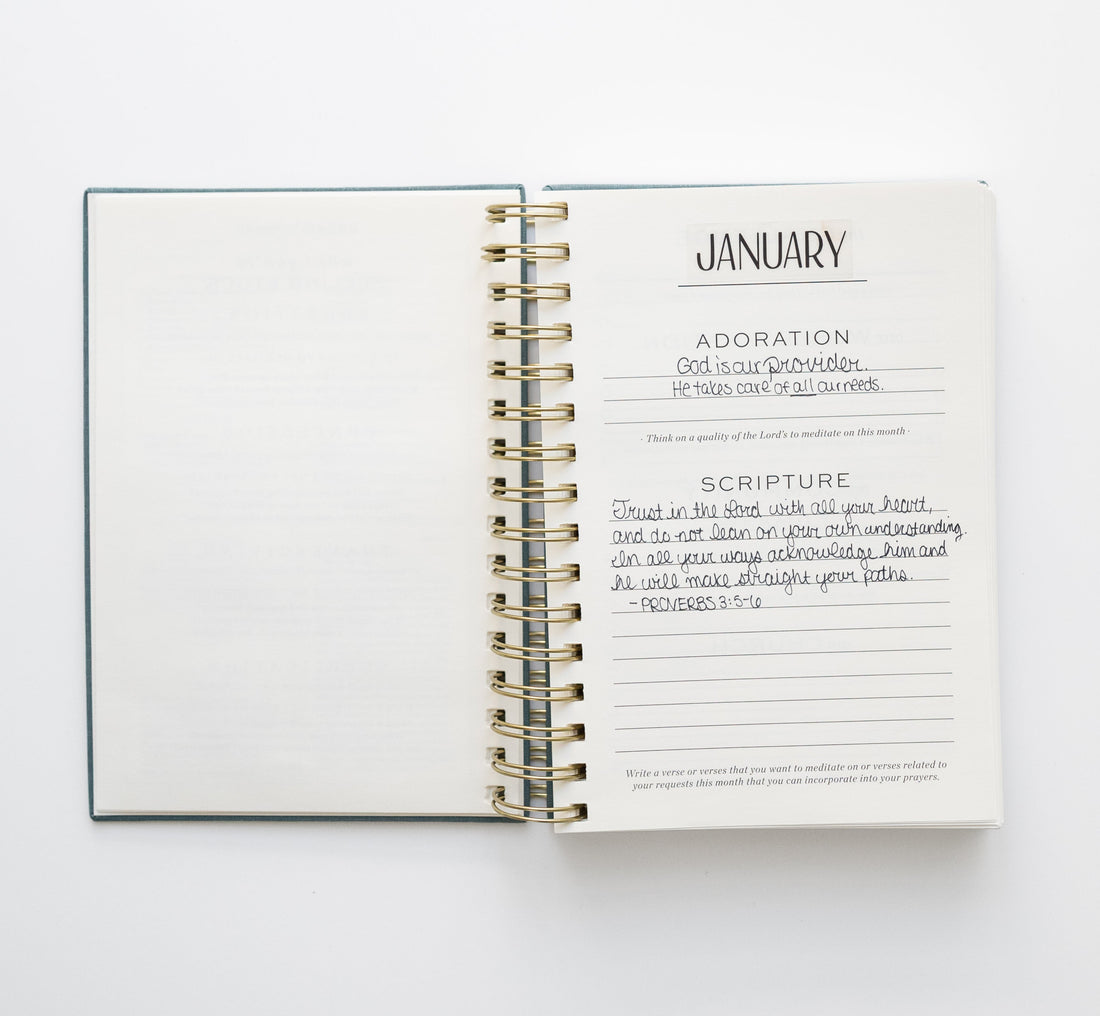 JANUARY
ADORATION
God is our provider.
He takes care of all our needs.
· Think on a quality of the Lord's to meditate on this month ·
SCRIPTURE
Trust in the Lord with all your heart,
and do not lean on your own understanding.
In all your ways acknowledge him and
he will make straight your paths.
- PROVERBS 3:5-6
Write a verse or verses that you want to meditate on or verses related to
your requests this month that you can incorporate into your prayers.